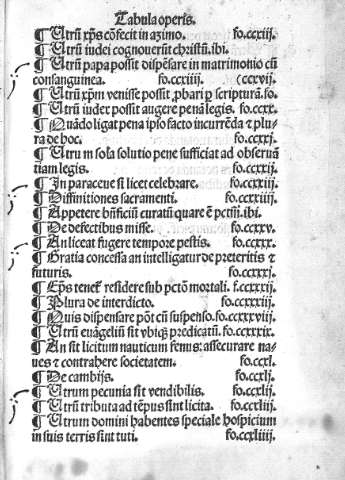 Tabula operis.
¶ Utrũ xp̃s cõfecit in azimo. fo.ccxiij.
¶ Utrũ iudei cognouerũt christũ.ibi.
¶ Utrũ papa possit dispẽsare in matrimonio cũ
consanguinea. fo.ccxiiij. (ccxvij.
¶ Utrũ xp̃m venisse possit ꝓbari ꝑ scripturã.fo.
¶ Utrũ iudex possit augere penã legis. fo.ccxx.
¶ Quãdo ligat pena ipso facto incurrẽda ⁊ plu-
ra de hoc. fo.ccxxj.
¶ Utrum sola solutio pene sufficiat ad obseruã
tiam legis. fo.ccxxij.
¶ In parasceue si licet celebrare. fo.ccxxiij.
¶ Diffinitiones sacramenti. fo.ccxxiiij.
¶ Appetere bñficiũ curatũ quare ẽ pctm̃.ibi.
¶ De defectibus misse. fo.ccxxv.
¶ An liceat fugere tempore pestis. fo.ccxxx.
¶ Gratia concessa an intelligatur de preteritis ⁊
futuris. fo.ccxxxj.
¶ Ep̃s tenet̃ residere sub pctõ mortali. f.ccxxxij.
¶ Plura de interdicto. fo.ccxxxiij.
¶ Quis dispensare põt cũ suspenso.fo.ccxxxviij.
¶ Utrũ euãgeliũ sit vbiqꝫ predicatũ. fo.ccxxxix.
¶ An sit licitum nauticum fenus: assecurare na-
ues ⁊ contrahere societatem. fo.ccxl.
¶ De cambijs. fo.ccxlj.
¶ Utrum pecunia sit vendibilis. fo.ccxlij.
¶ Utrũ tributa ad tẽpus sint licita. fo.ccxliij.
¶ Utrum domini habentes speciale hospicium
in suis terris sint tuti. fo.ccxliiij.